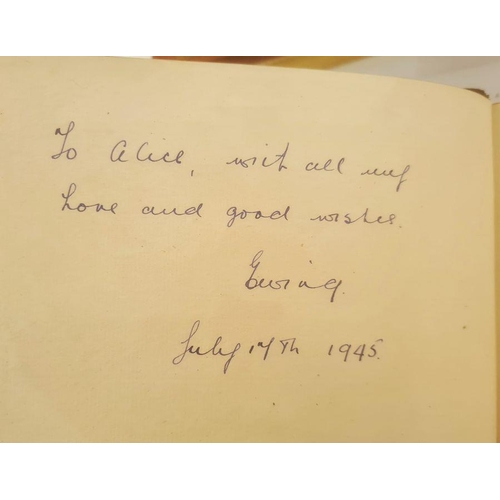 To Alice, with all my
Love and good wishes.
Ewing.
July 17th 1945.